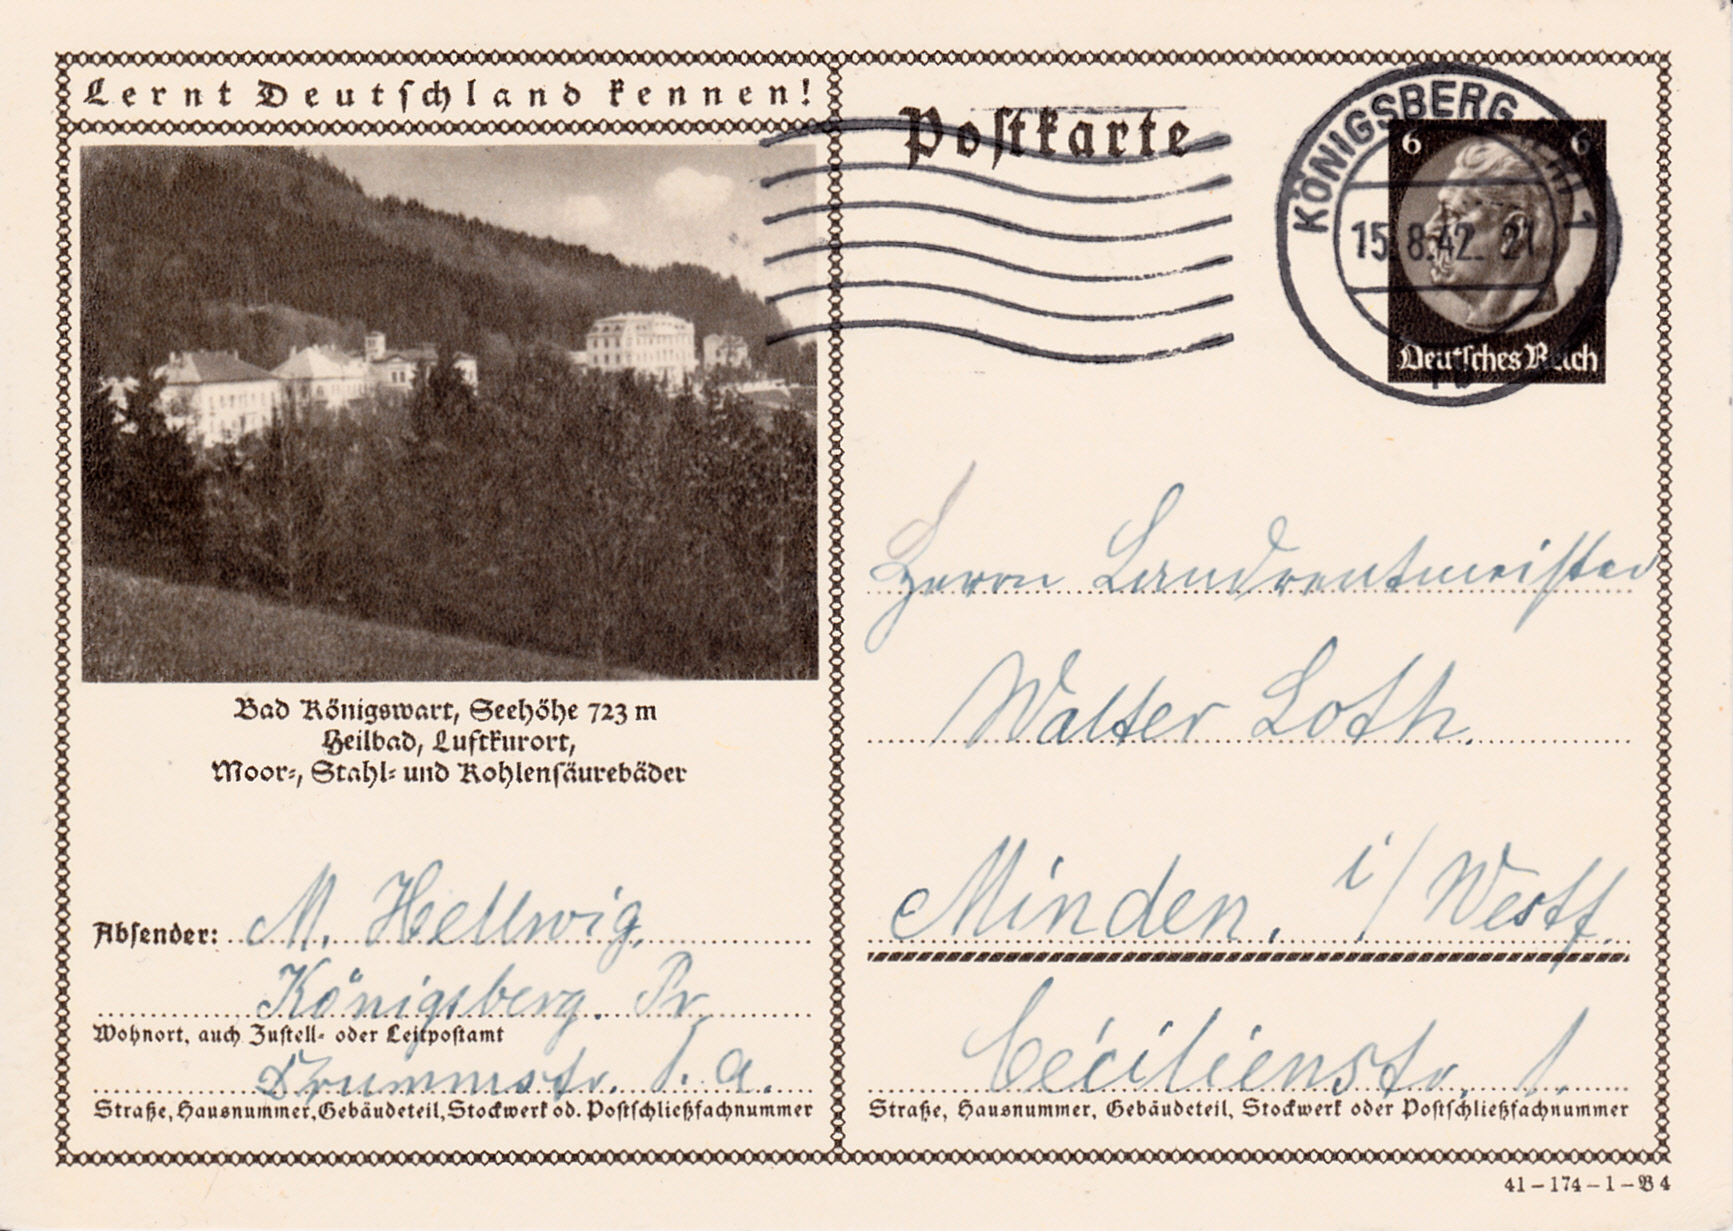 Lernt Deutschland kennen!
Bad Königswart, Seehöhe 723 m
Heilbad, Luftkurort,
Moor-, Stahl- und Kohlensäurebäder
Absender: M. Hellwig,
Königsberg. Pr
Wohnort, auch Zustell- oder Leitpostamt
Krummstr. 1. a.
Straße, Hausnummer, Gebäudeteil, Stockwerk od. Postschließfachnummer
Postkarte
KÖNIGSBERG 1
15.8.42. 21
6 6
Deutsches Reich
Herrn Landrentmeister
Walter Loth.
Minden. i/Westf.
Cécilienstr. 1.
Straße, Hausnummer, Gebäudeteil, Stockwerk oder Postschließfachnummer
41-174-1-B 4